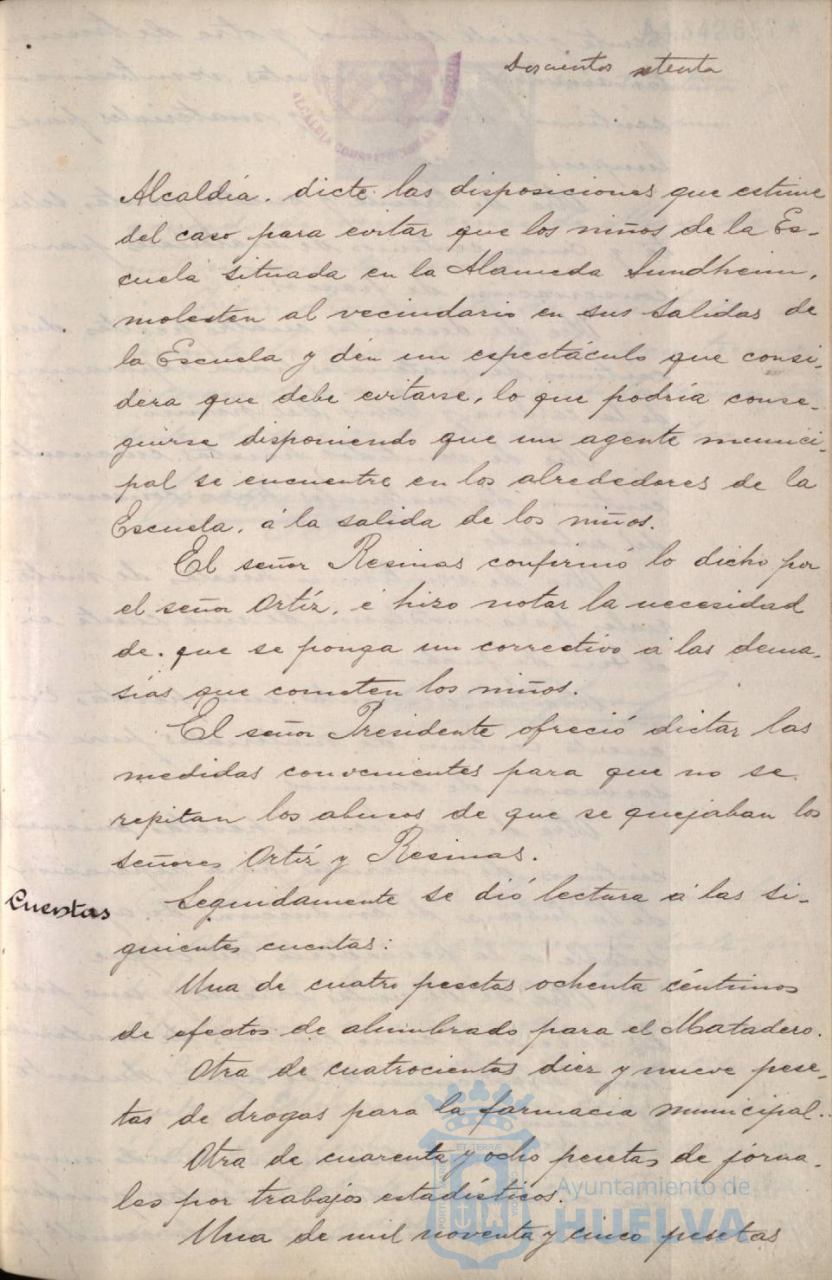 Doscientos setenta
ALCALDÍA CONSTITUCIONAL DE HUELVA
Alcaldía, dicte las disposiciones que estime
del caso para evitar que los niños de la Es-
cuela situada en la Alameda Sundheim,
molesten al vecindario en sus salidas de
la Escuela y dén un espectáculo que consi-
dera que debe evitarse, lo que podría conse-
guirse disponiendo que un agente munici-
pal se encuentre en los alrededores de la
Escuela, á la salida de los niños.
El señor Resinas confirmó lo dicho por
el señor Ortíz, é hizo notar la necesidad
de que se ponga un correctivo á las dema-
sías que cometen los niños.
El señor Presidente ofreció dictar las
medidas convenientes para que no se
repitan los abusos de que se quejaban los
señores Ortíz y Resinas.
Cuentas
Seguidamente se dió lectura á las si-
guientes cuentas:
Una de cuatro pesetas ochenta céntimos
de efectos de alumbrado para el Matadero.
Otra de cuatrocientas diez y nueve pese-
tas de drogas para la farmacia municipal.
Otra de cuarenta y ocho pesetas de jorna-
les por trabajos estadísticos.
Una de mil noventa y cinco pesetas
Ayuntamiento de
HUELVA